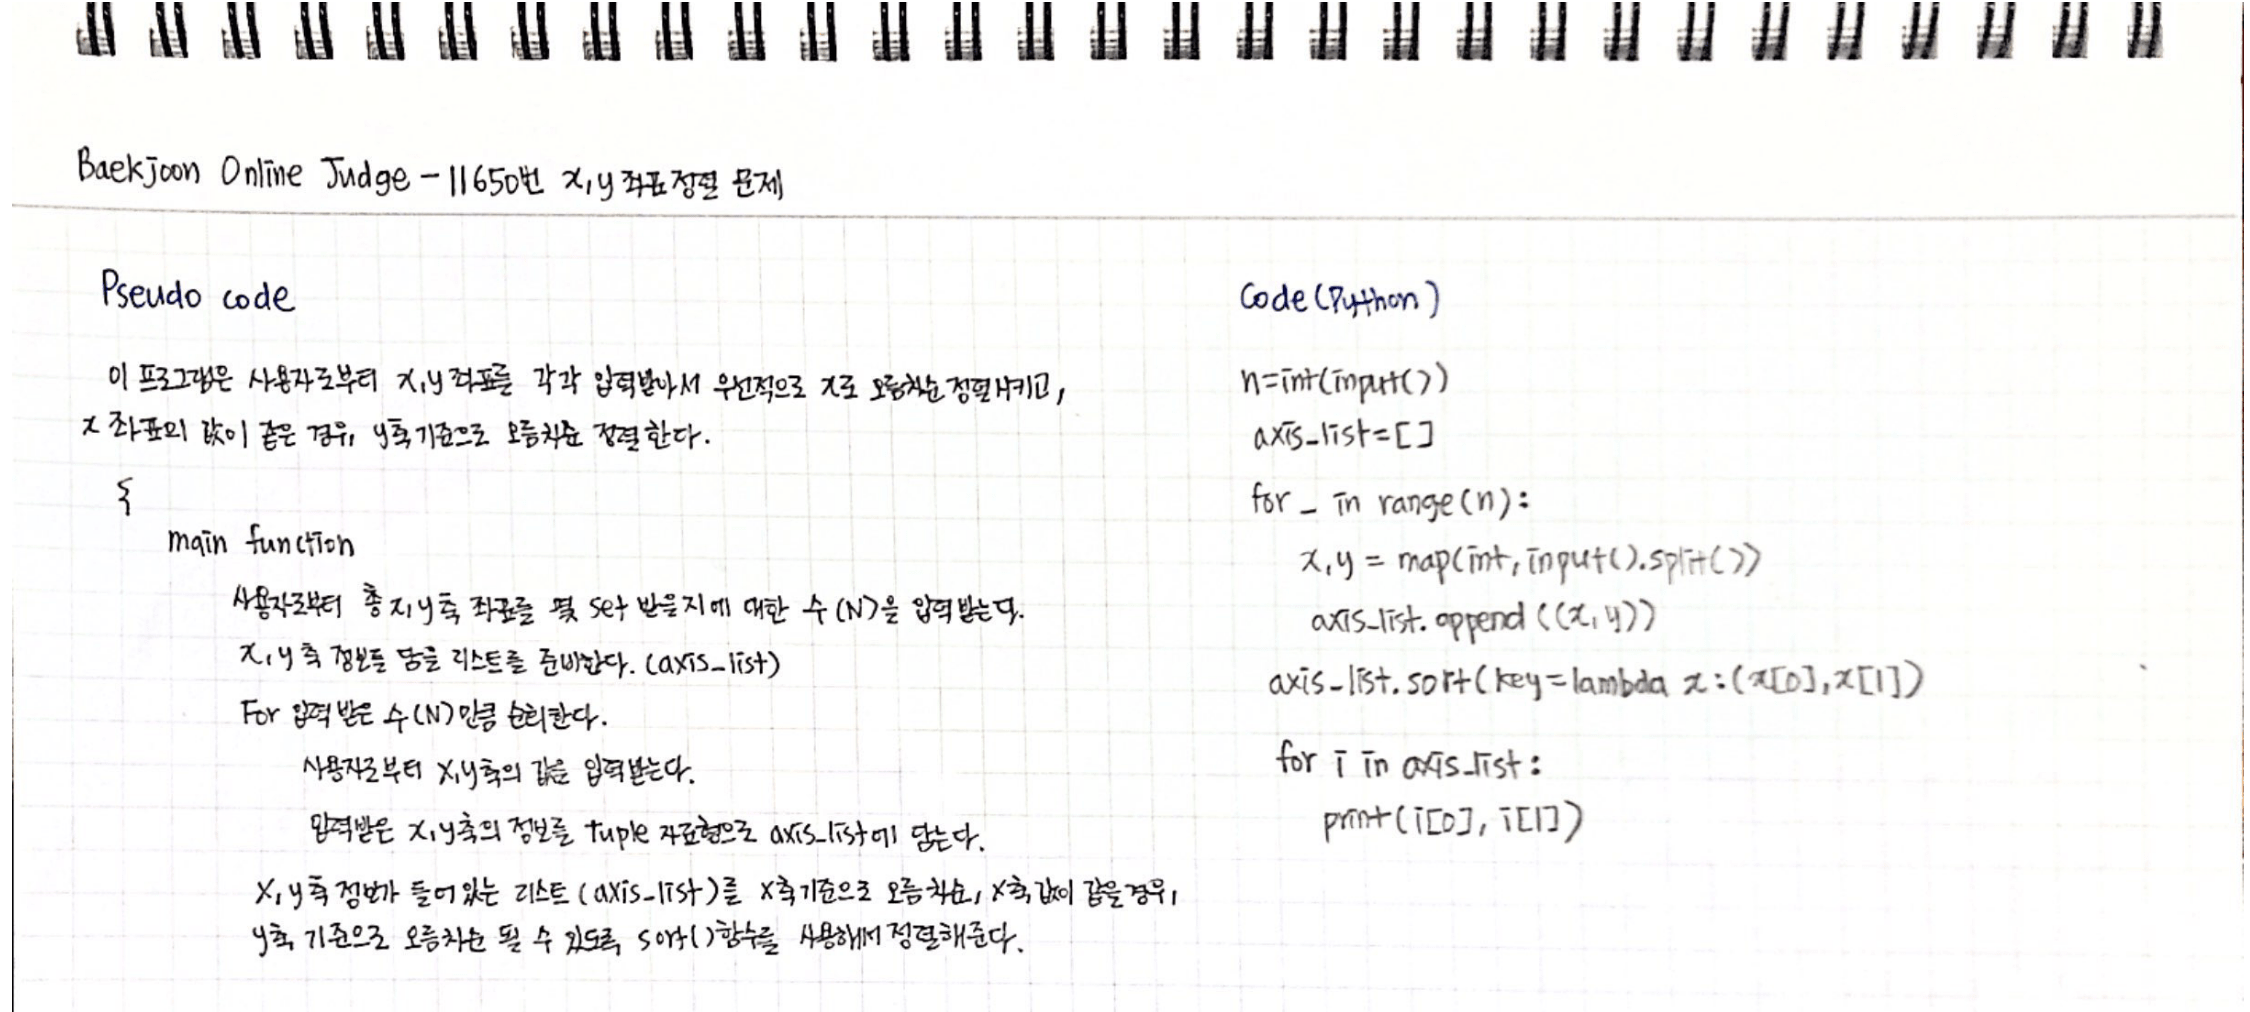 Baekjoon Online Judge - 11650번 x,y 좌표정렬 문제
Pseudo code
이 프로그램은 사용자로부터 x,y 좌표를 각각 입력받아서 우선적으로 x로 오름차순 정렬시키고,
x 좌표의 값이 같은 경우, y축 기준으로 오름차순 정렬한다.
{
main function
사용자로부터 총 x,y축 좌표를 몇 set 받을지에 대한 수 (N)을 입력받는다.
x,y축 정보를 담을 리스트를 준비한다. (axis_list)
For 입력받은 수(N)만큼 순회한다.
사용자로부터 x,y축의 값을 입력받는다.
입력받은 x,y축의 정보를 tuple 자료형으로 axis_list에 담는다.
x,y축 정보가 들어있는 리스트(axis_list)를 x축기준으로 오름차순, x축 값이 같을경우,
y축 기준으로 오름차순 될 수 있도록 sort()함수를 사용해서 정렬해준다.
Code(Python)
n=int(input())
axis_list=[]
for _ in range(n):
x,y = map(int,input().split())
axis_list.append((x,y))
axis_list.sort(key=lambda x:(x[0],x[1])
for i in axis_list:
print(i[0], i[1])